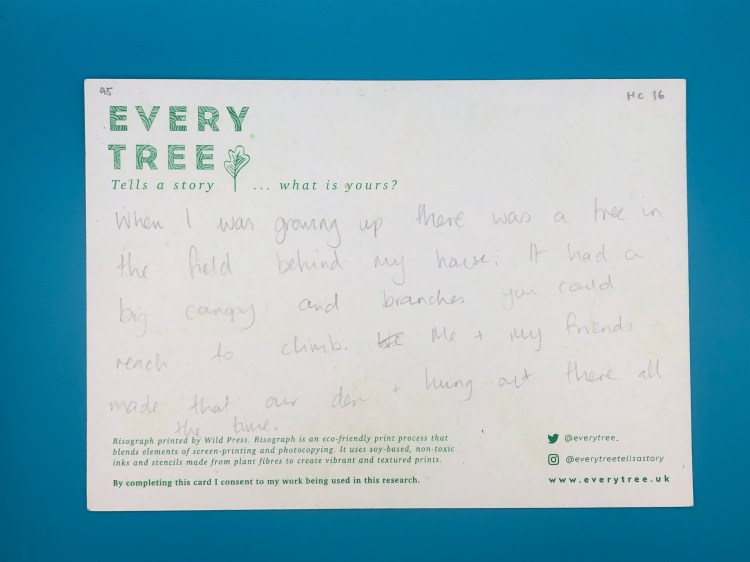 95
Mc 16
EVERY
TREE
Tells a story ... what is yours?
When I was growing up there was a tree in
the field behind my house. It had a
big canopy and branches you could
reach to climb. Me + my friends
made that our den + hung out there all
the time.
Risograph printed by Wild Press. Risograph is an eco-friendly print process that
blends elements of screen-printing and photocopying. It uses soy-based, non-toxic
inks and stencils made from plant fibres to create vibrant and textured prints.
By completing this card I consent to my work being used in this research.
@everytree_
@everytreetellsastory
www.everytree.uk